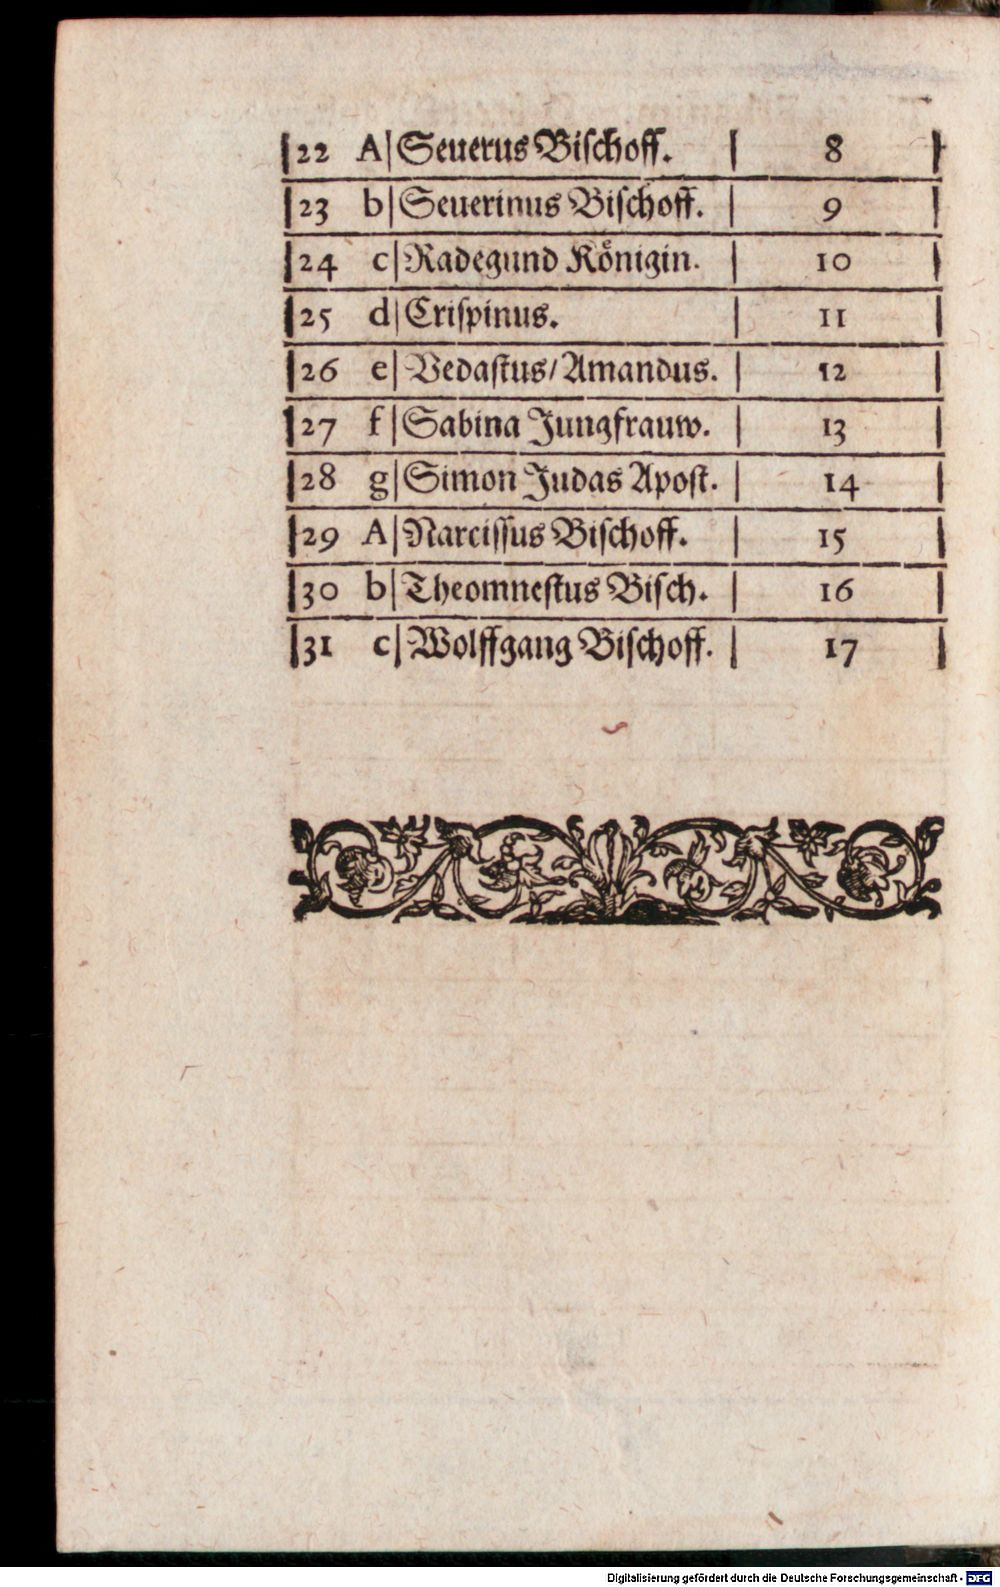 22 A Seuerus Bischoff. 8
23 b Seuerinus Bischoff. 9
24 c Radegund Koͤnigin. 10
25 d Crispinus. 11
26 e Vedastus/Amandus. 12
27 f Sabina Jungfrauw. 13
28 g Simon Judas Apost. 14
29 A Narcissus Bischoff. 15
30 b Theomnestus Bisch. 16
31 c Wolffgang Bischoff. 17
Digitalisierung gefördert durch die Deutsche Forschungsgemeinschaft - DFG